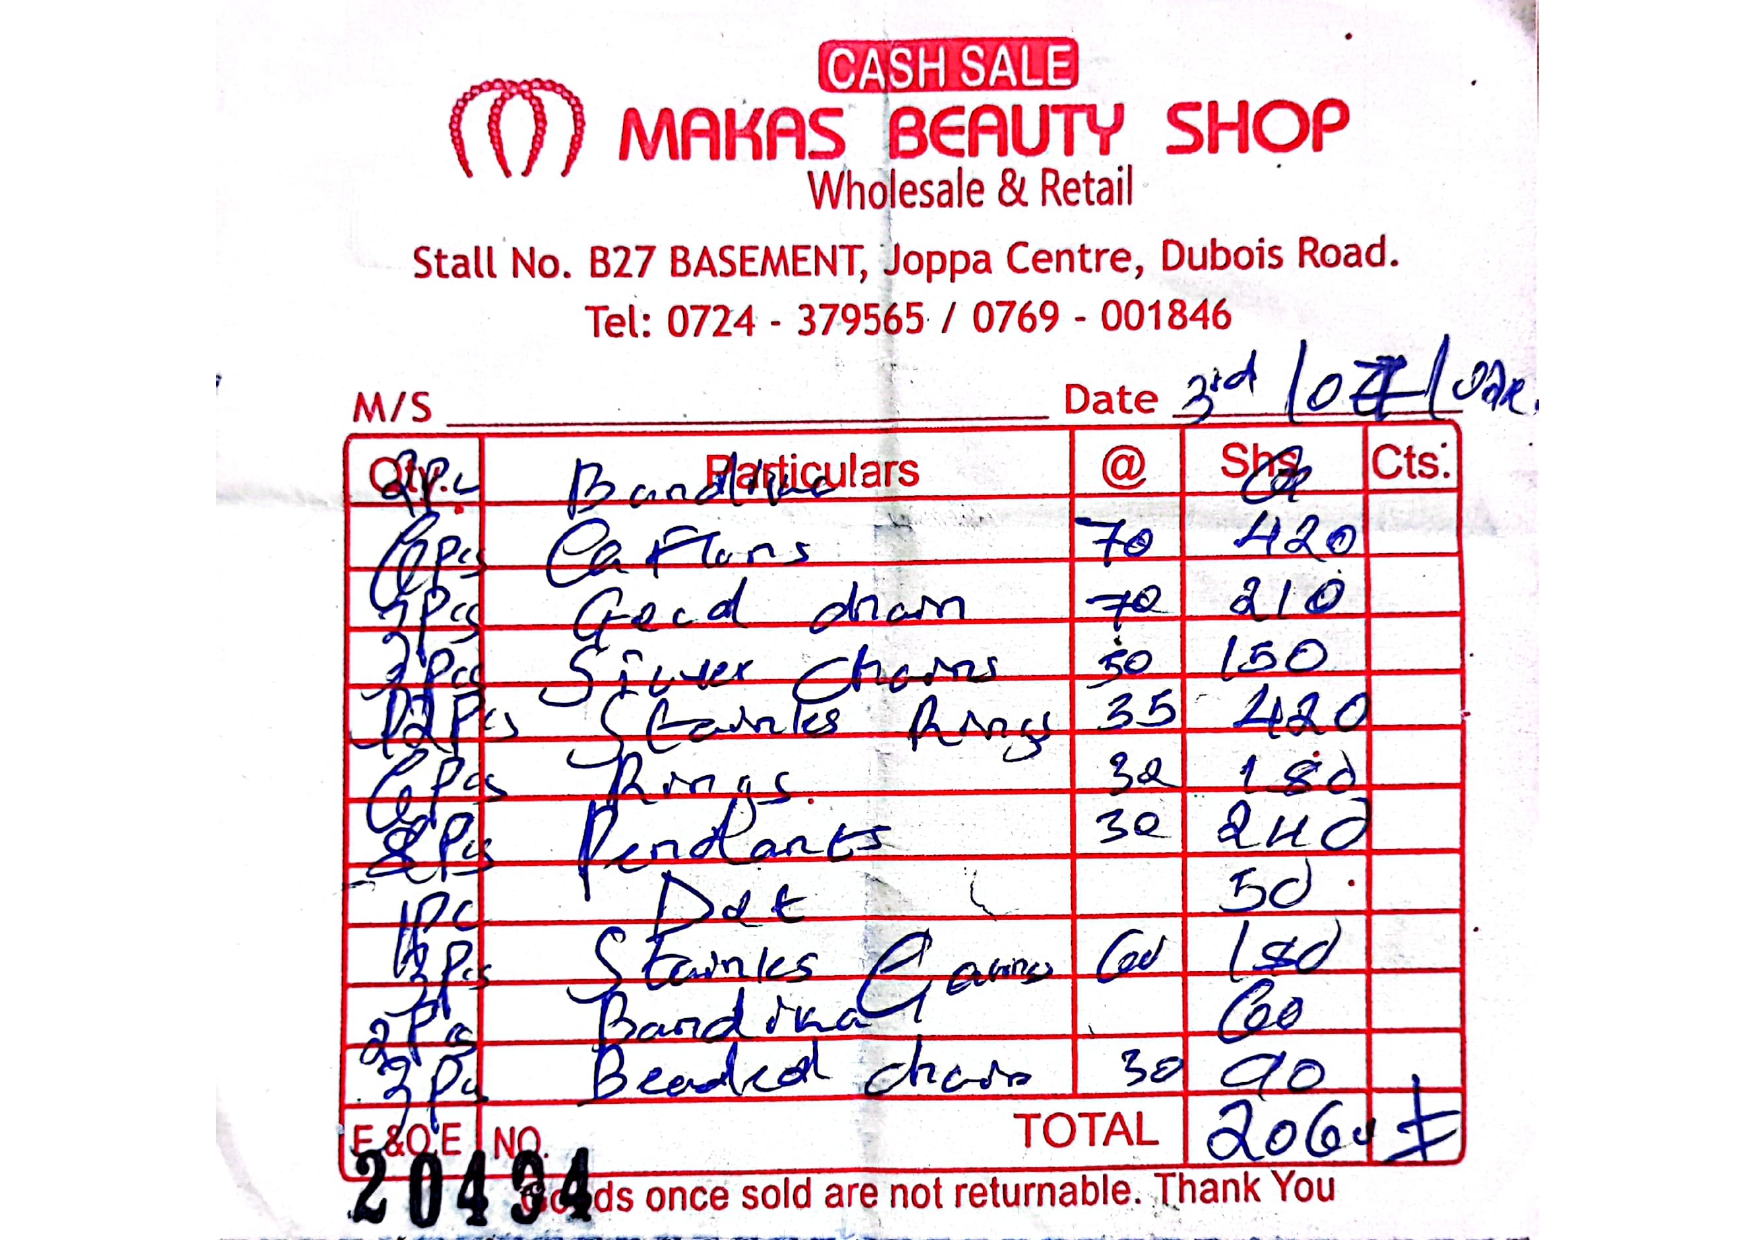 CASH SALE
MAKAS BEAUTY SHOP
Wholesale & Retail
Stall No. B27 BASEMENT, Joppa Centre, Dubois Road.
Tel: 0724 - 379565 / 0769 - 001846
M/S Date 3rd
Qty. Particulars @ Shs. Cts.
2Pc Bandika 60
6Pcs 70 420
3Pcs Gecd chain 70 210
3Pcs Siuver Chains 50 150
12Pcs Stainles Rings 35 420
6Pcs Rings. 30 180
8Pcs Pendants 30 240
1Pc 50
3Pcs Stainles 60 180
2Pcs Bandika 60
3Pcs Beaded chain 30 90
E &O.E NO. TOTAL 2060
20494
Goods once sold are not returnable. Thank You